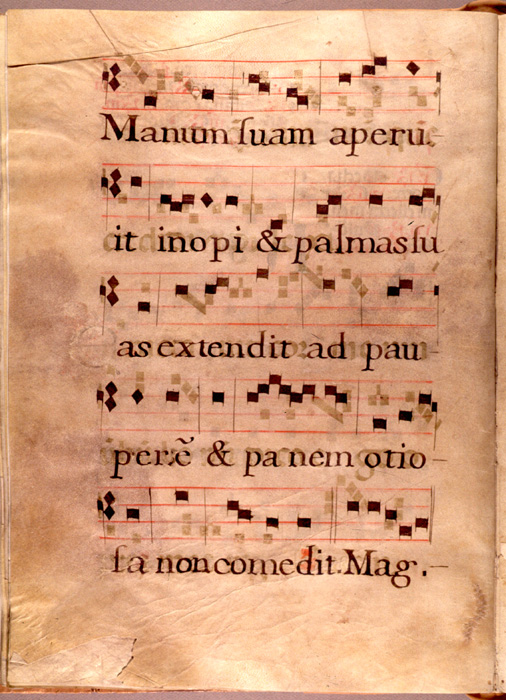 Manum ſuam aperu-
it inopi & palmas ſu
as extendit ad pau-
perẽ & panem otio-
ſa non comedit. Mag.